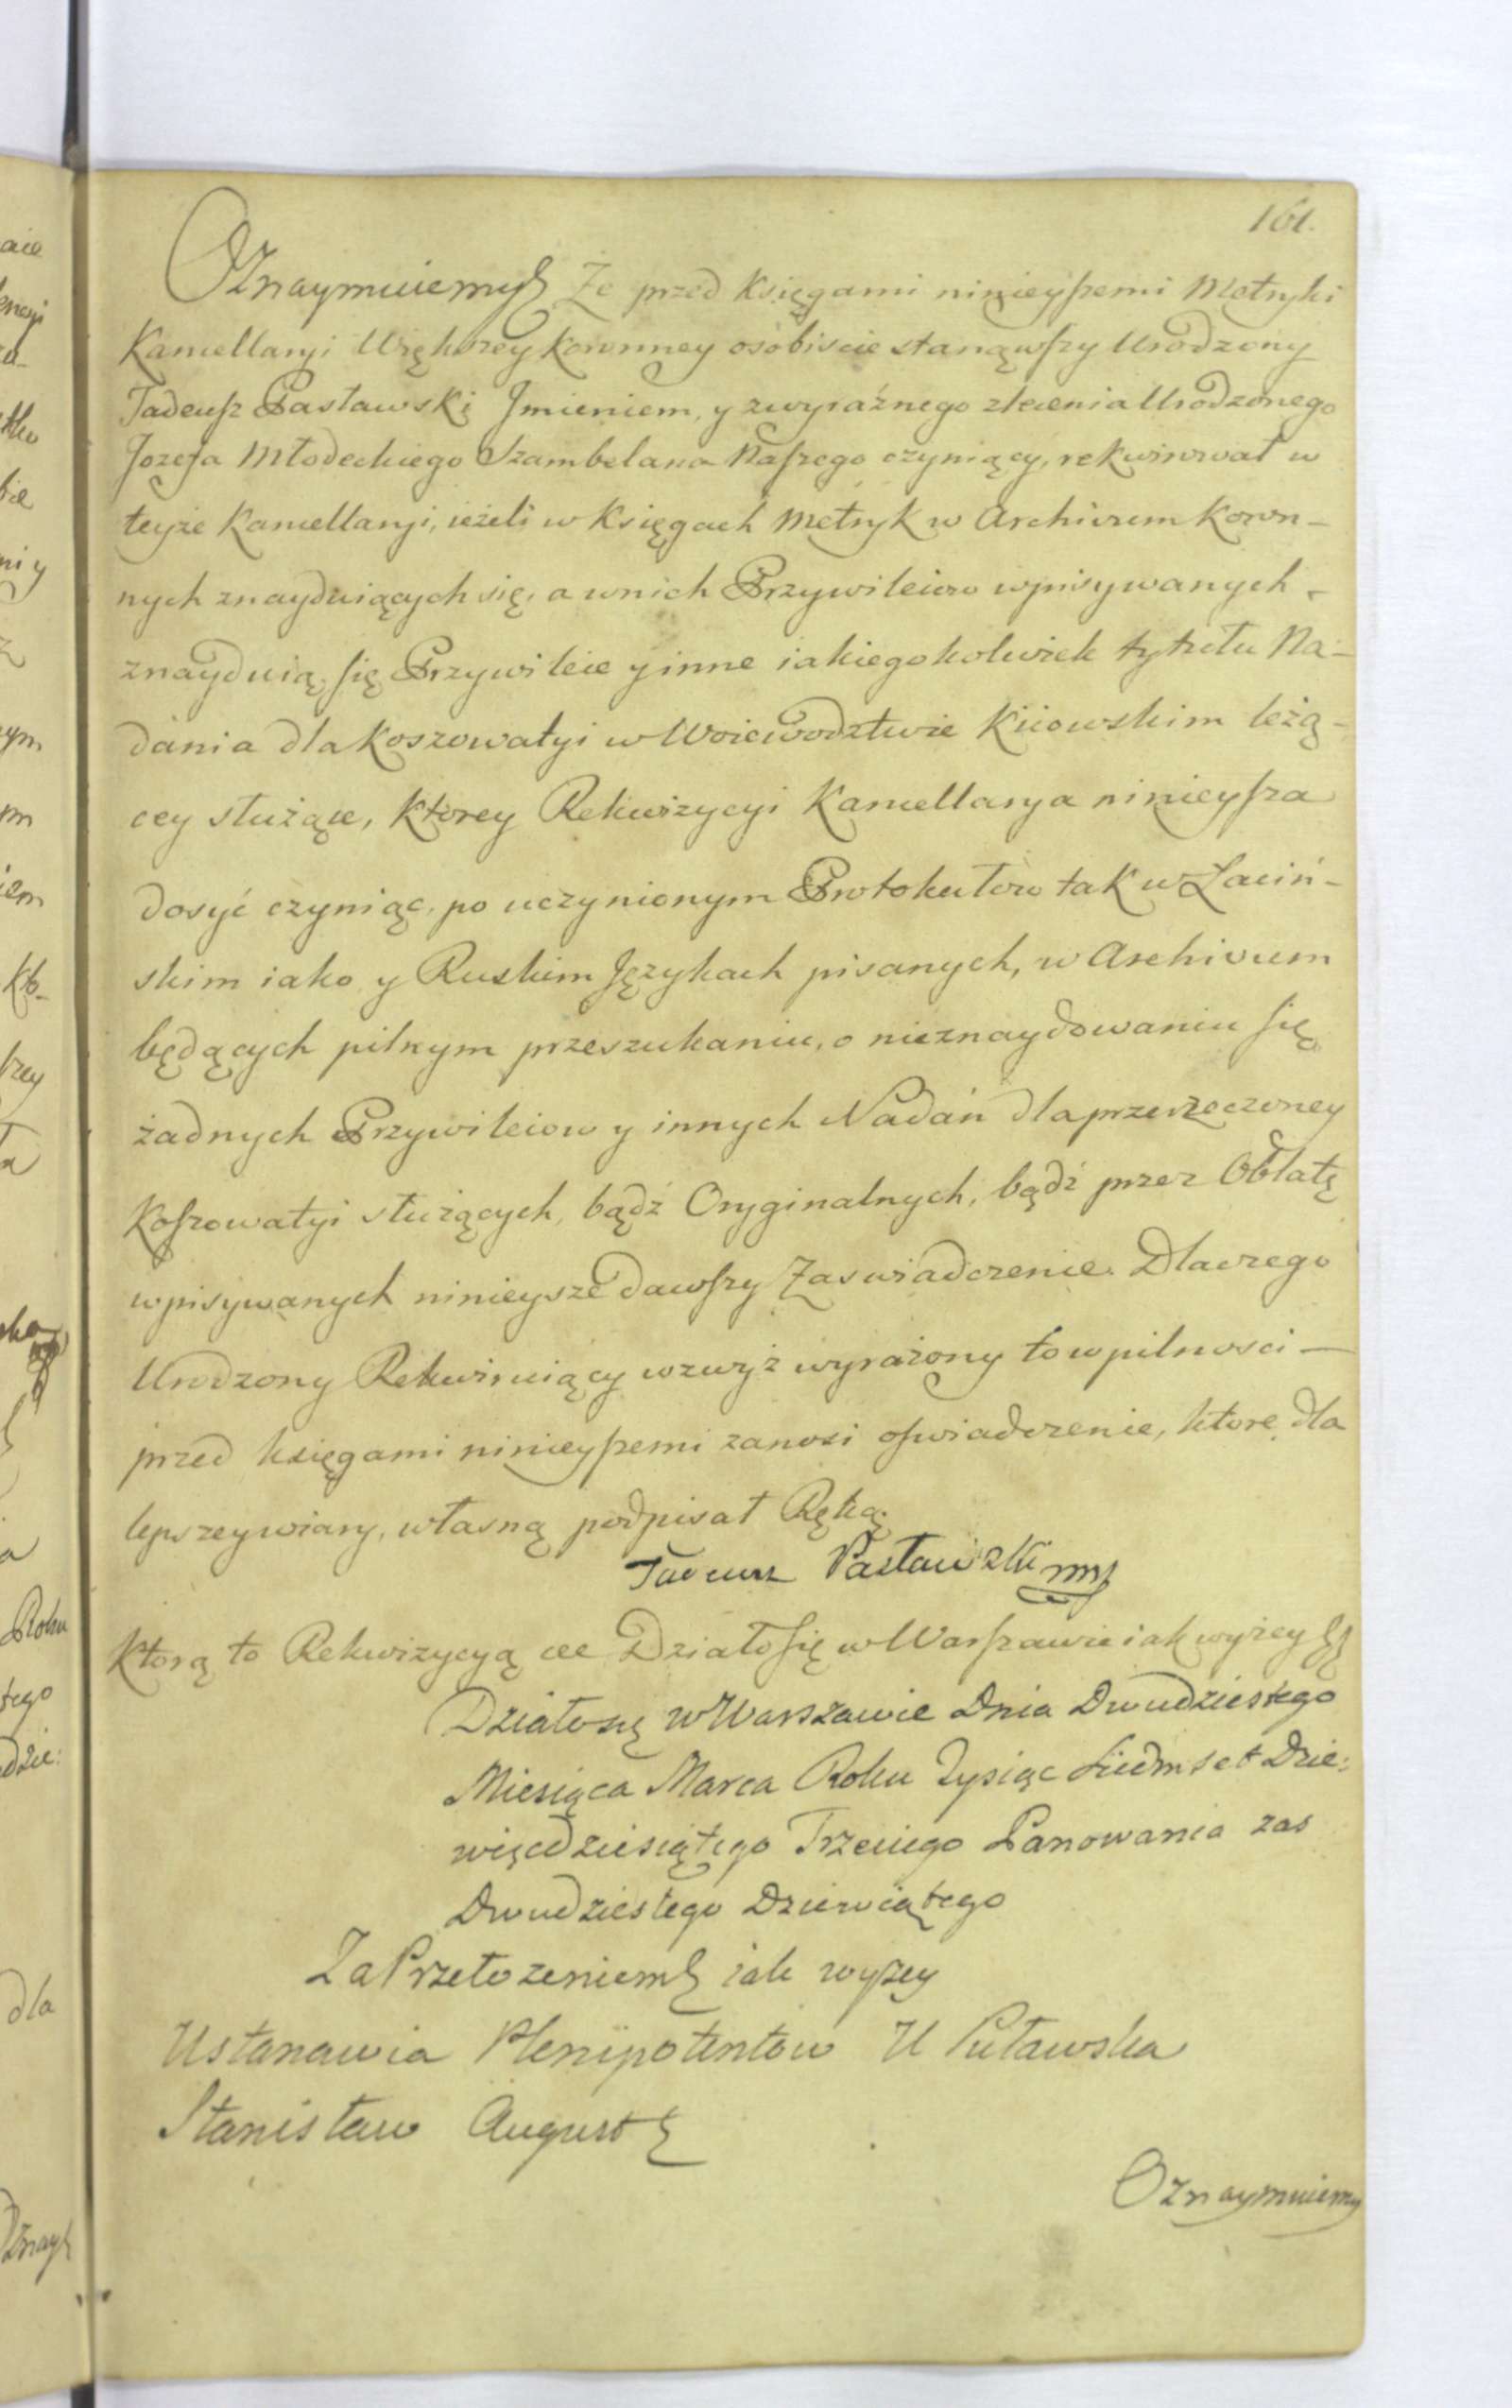 161.
Oznaymuiemy Że przed Księgami ninieyszemi Metryki
Kancellaryi Większey Koronney osobiscie stanąwszy Urodzony
Tadeusz Pasławski Jmieniem, y zwyraźnego zlecenia Urodzonego
Jozefa Młodeckiego Szambelana Naszego czyniący, rekwirował w
teyże Kancellaryi, ieżeli w Księgach Metryk w Archivum Koron-
nych znayduiących się, a wnich Przywileiow wpisywanych
znayduią się Przywileie y inne iakiegokolwiek tytułu Na-
dania dla Koszowatyi w Woiewodztwie Kiiowskim leżą-
cey służące, Ktorey Rekwizycyi Kancellarya ninieysza
dosyć czyniąc, po uczynionym Protokułow tak w Łaciń-
skim iako y Ruskim Językach pisanych, w Archivum
będących pilnym przeszukaniu, o nieznaydowaniu się
żadnych Przywileiow y innych Nadań dla przerzeczoney
Koszowatyi służących, bądź Oryginalnych, bądź przez Oblatę
wpisywanych ninieysze dawszy Zaswiadczenie. Dlaczego
Urodzony Rekwiruiący wzwyż wyrażony to w pilnosci —
przed księgami ninieyszemi zanosi oswiadczenie, ktore dla
lepszey wiary, własną podpisał Ręką.
Tadeusz Pasławski mp
Ktorą to Rekwizycyą etc Działo się w Warszawie iak wyżey
Działo się w Warszawie Dnia Dwudziestego
Miesiąca Marca Roku Tysiąc Siedmset Dzie:
więcdziesiątego Trzeciego Panowania zas
Dwudziestego Dziewiątego
Za Przełozeniem iak wyzey
Ustanawia Plenipotentow U Puławska
Stanisław August
Oznaymuiemy